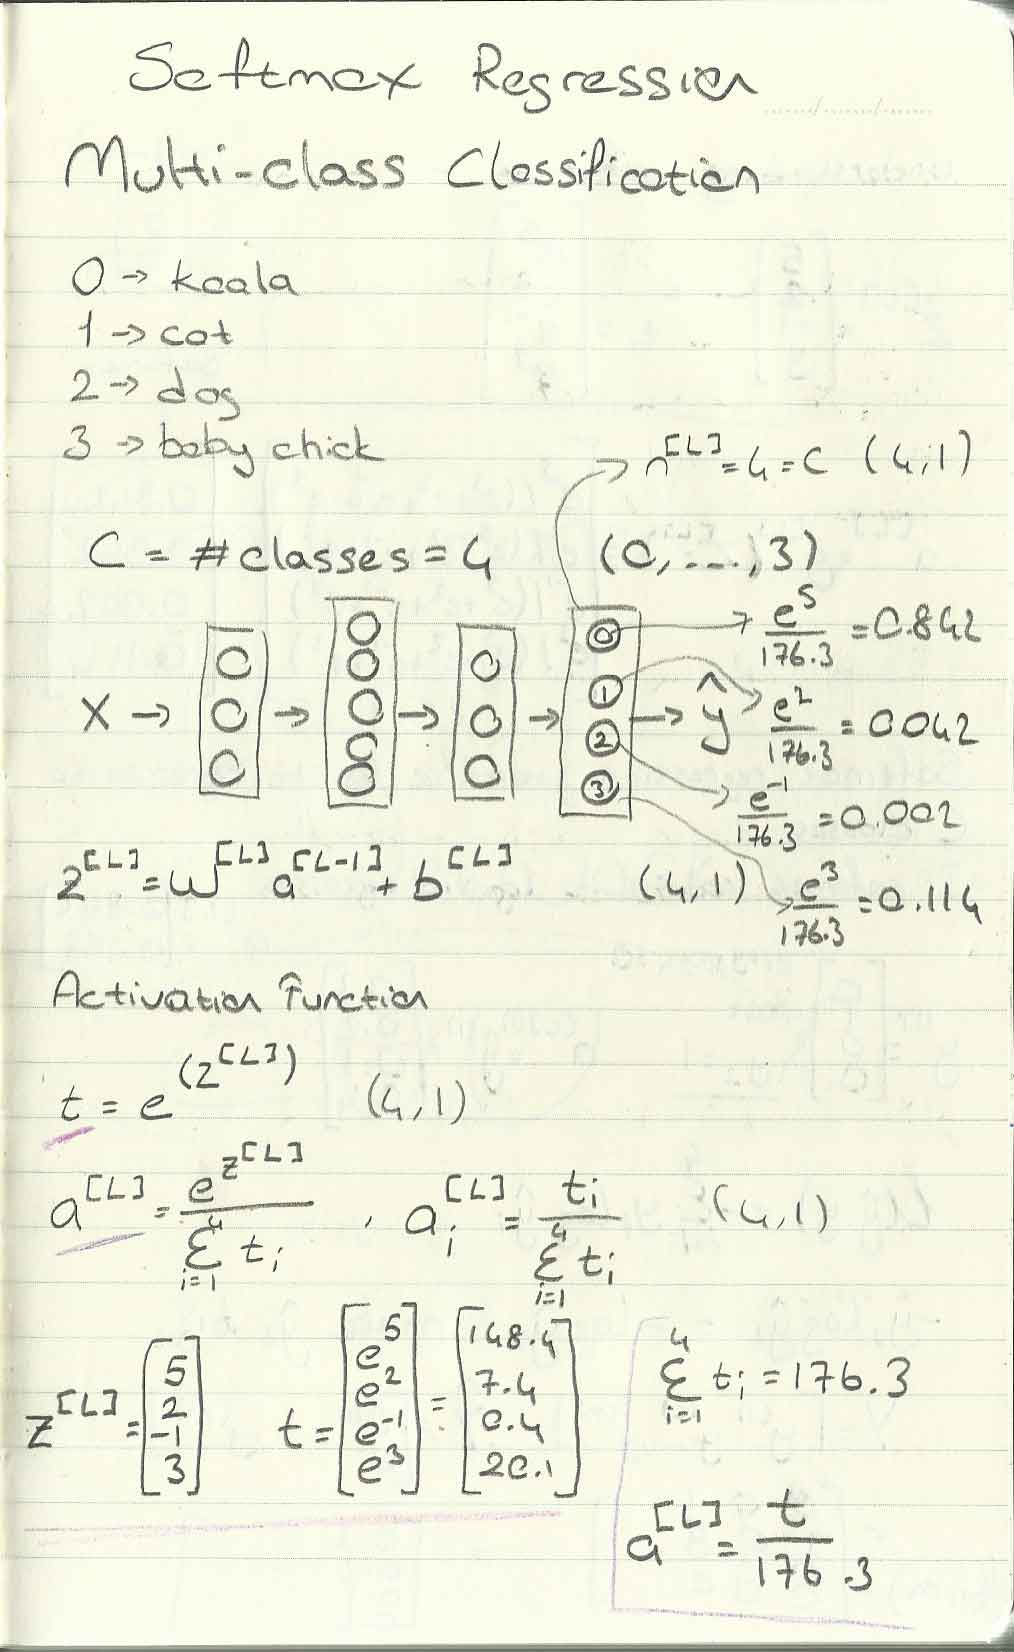 Softmax Regression
Multi-class Classification
0 → koala
1 → cat
2 → dog
3 → baby chick
n^[L] = 4 = C (4,1)
C = #classes = 4 (0, ..., 3)
0 e^5/176.3 = 0.842
X → → → → 1 → ŷ e^2/176.3 = 0.042
2 e^-1/176.3 = 0.002
3 e^3/176.3 = 0.114
z^[L] = w^[L] a^[L-1] + b^[L] (4,1)
Activation Function
t = e^(z^[L]) (4,1)
a^[L] = e^z^[L] / Σ_{i=1}^4 t_i , a_i^[L] = t_i / Σ_{i=1}^4 t_i (4,1)
z^[L] = [5 2 -1 3] t = [e^5 e^2 e^-1 e^3] = [148.4 7.4 0.4 20.1] Σ_{i=1}^4 t_i = 176.3
a^[L] = t / 176.3